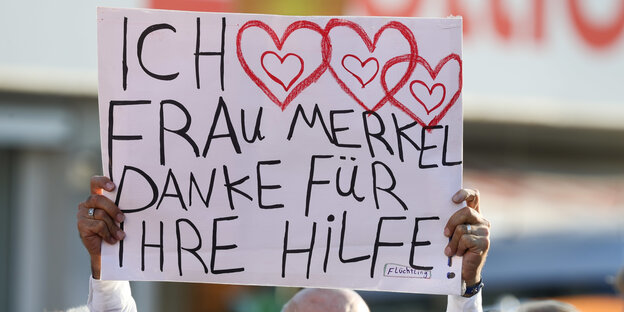 ICH
FRAU MERKEL
DANKE FÜR
IHRE HILFE!
FLÜCHTLING